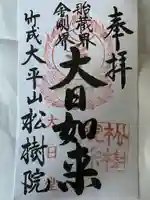 奉拝
胎蔵界
金剛界
大日如来
大日堂
竹成 大平山松樹院